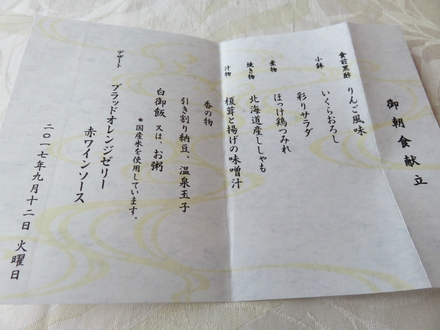 御朝食献立
食前黒酢 りんご風味
小鉢 いくらおろし
彩りサラダ
煮物 ほっけ鶏つみれ
焼き物 北海道産ししゃも
汁物 榎茸と揚げの味噌汁
香の物
引き割り納豆、温泉玉子
白御飯 又は、お粥
*国産米を使用しています。
デザート ブラッドオレンジゼリー
赤ワインソース
二〇一七年九月十二日 火曜日